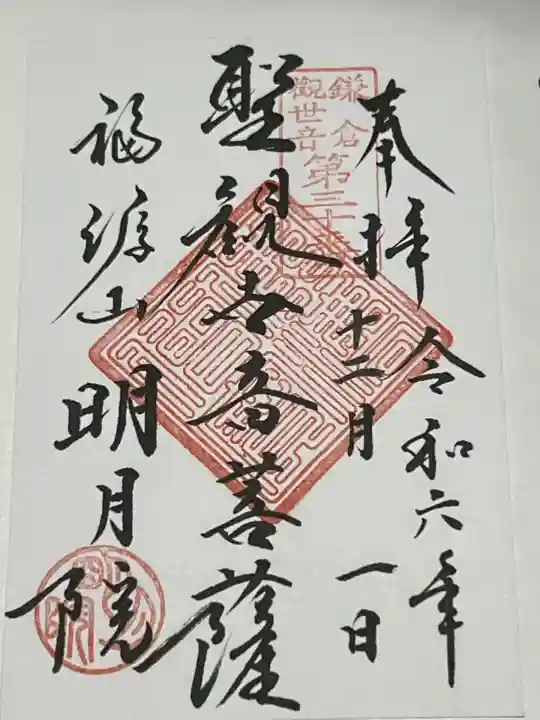 奉拝
令和六年
十二月一日
鎌倉
観世音
第三十番
聖観世音菩薩
福源山明月院